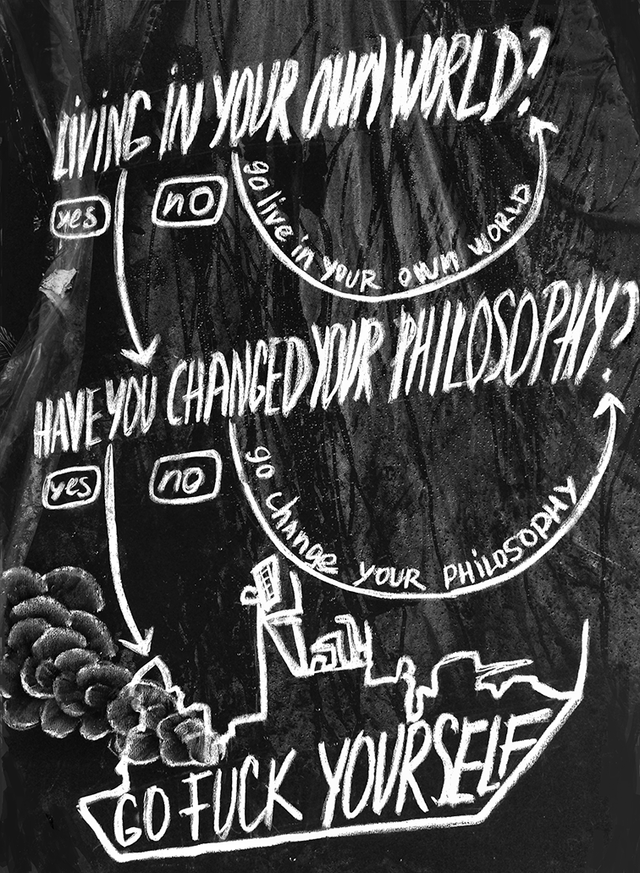 LIVING IN YOUR OWN WORLD?
yes
no
go live in YOUR OWN WORLD
HAVE YOU CHANGED YOUR PHILOSOPHY?
yes
no
go change YOUR PHILOSOPHY
GO FUCK YOURSELF